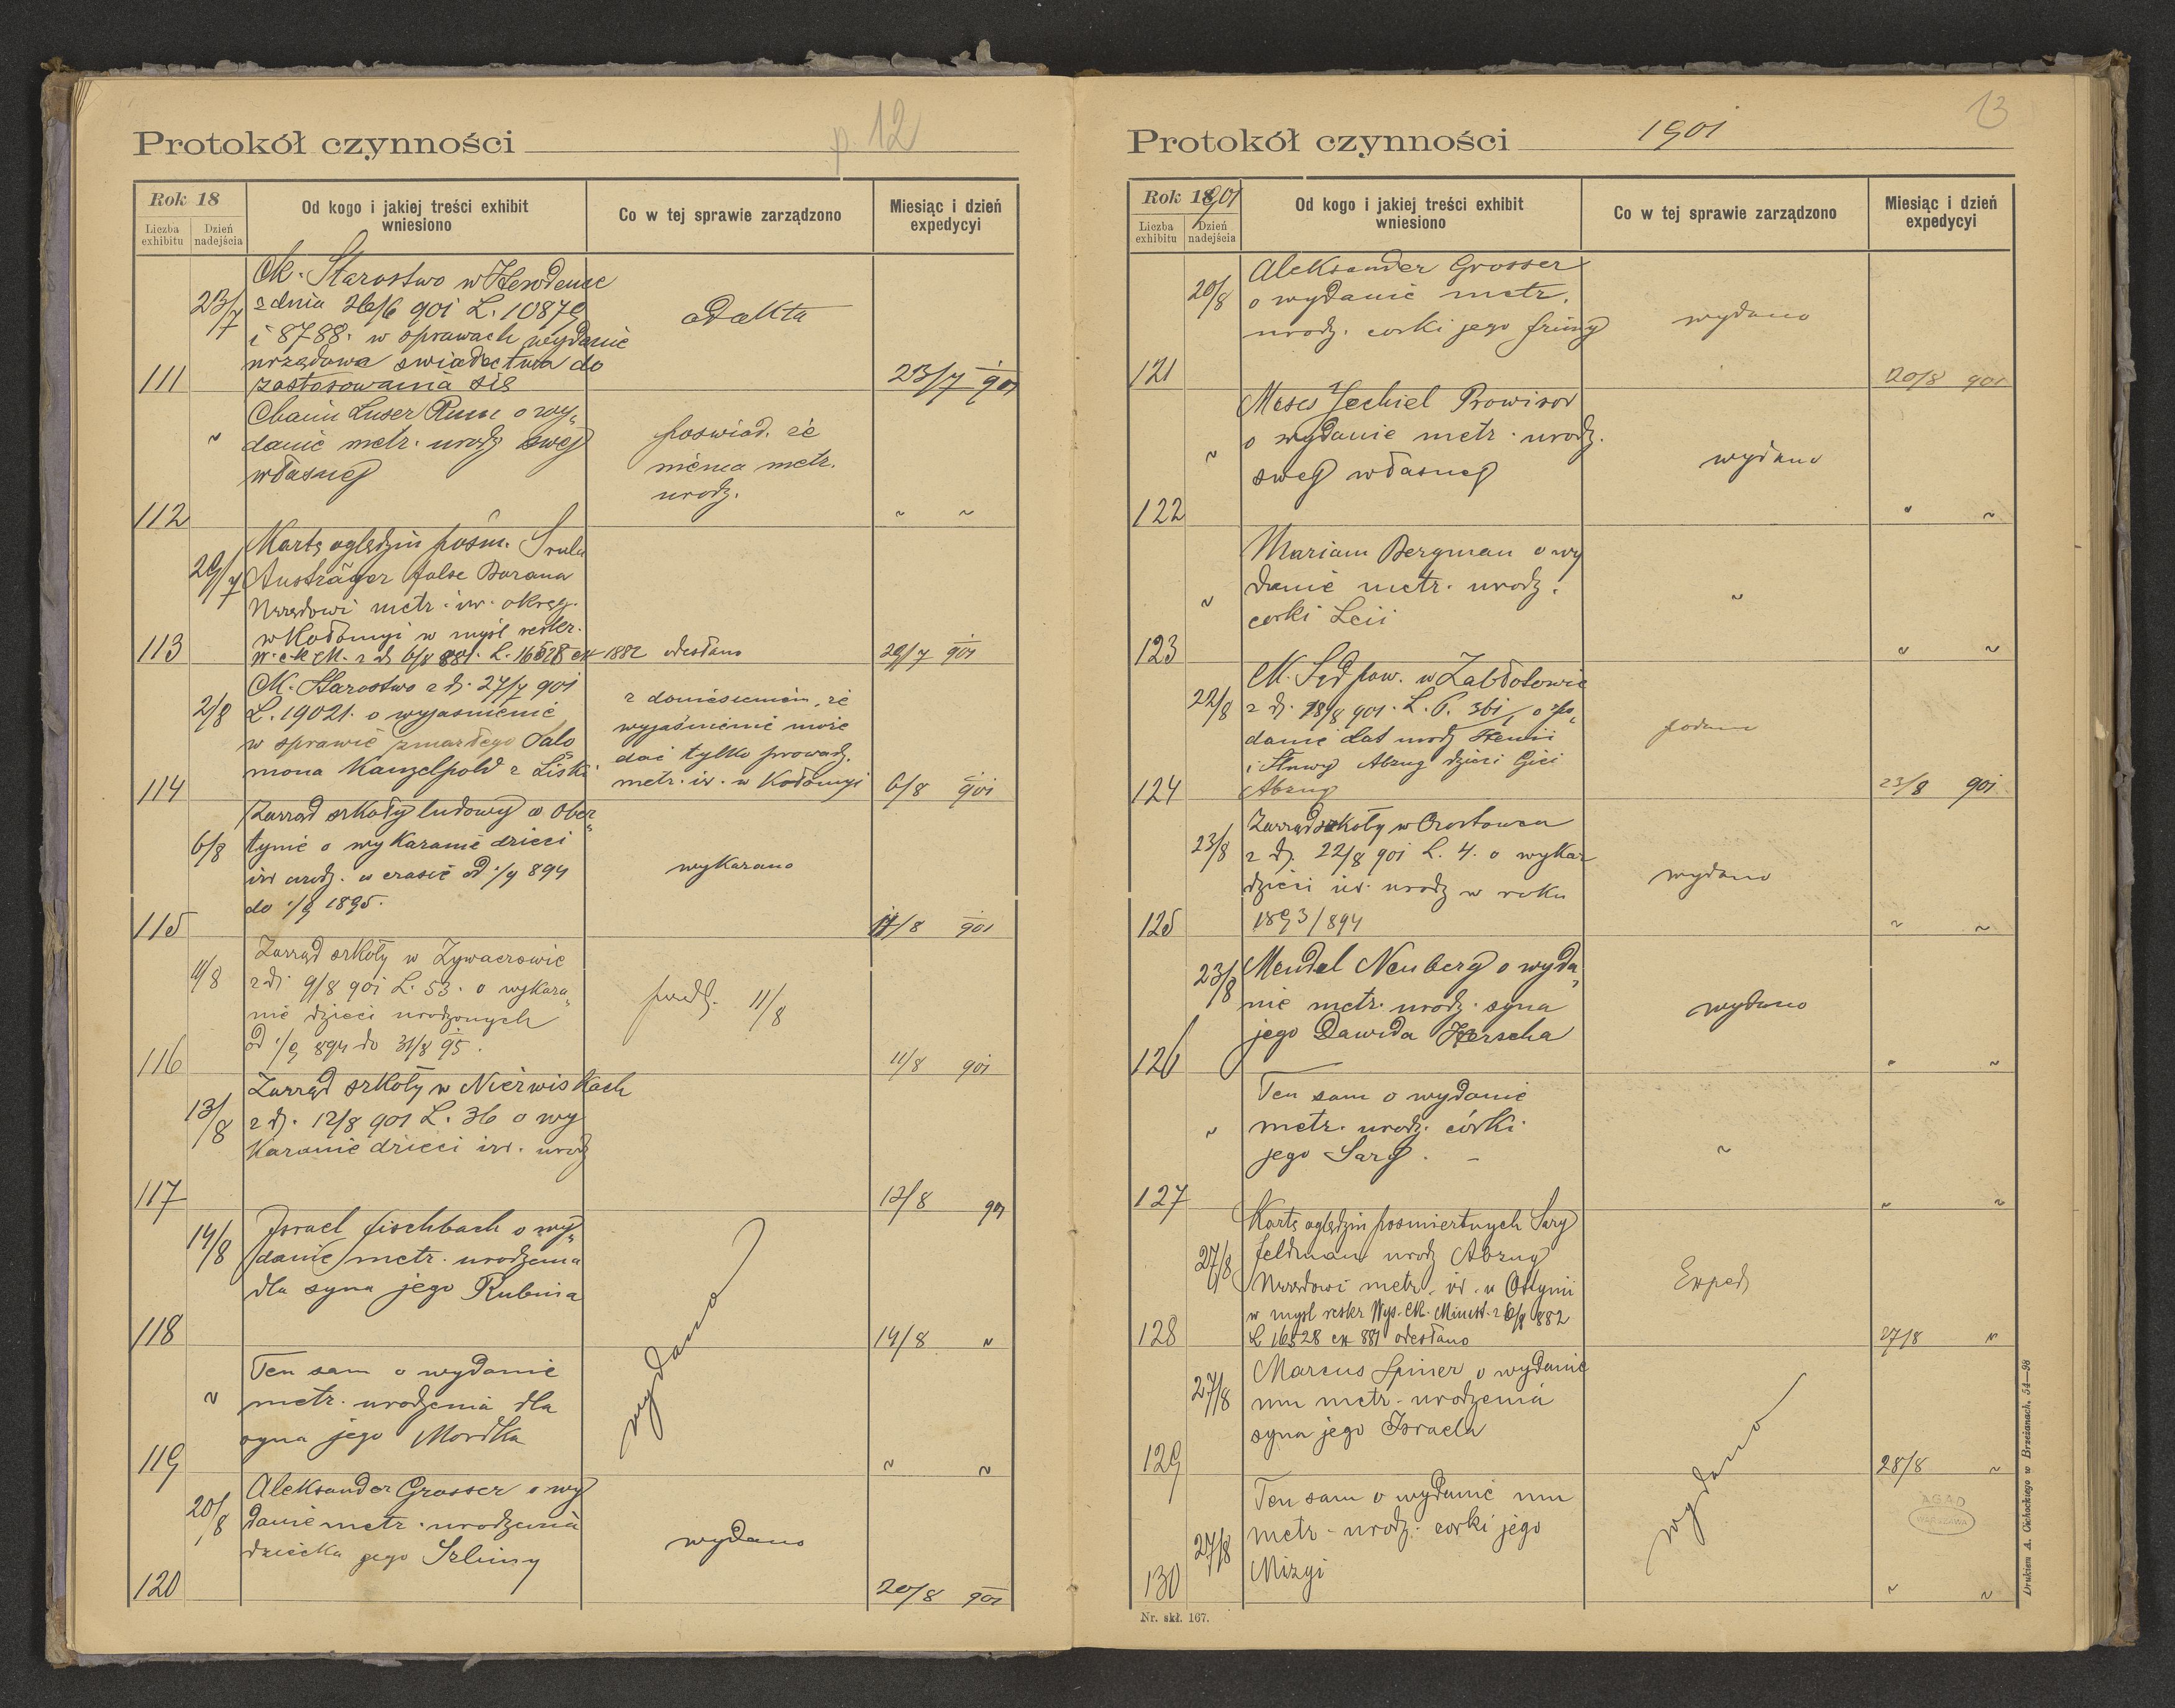 p. 12
Protokół czynności
Rok 18
Liczba exhibitu
Dzień nadejścia
Od kogo i jakiej treści exhibit wniesiono
Co w tej sprawie zarządzono
Miesiąc i dzień expedycyi
111
23/7
Ck. Starostwo w
z dnia 26/6 901 L. 10879
i 8788. w sprawach wydanie
urzędowa swiadectwa do
zastosowania się
ad akta
23/7 901
112
"
Chaim Luser o wy„
danie metr. urodz swej
własnej
poswiad. że
niema metr.
urodz.
" "
113
29/7
Kartę oględzin pośm. Srula
Austräger false Barana
Urzędowi metr. izr. okręg.
w Kołomyi w myśl reskr.
W. c.k. M. z d. 6/8 881. L. 16528 ex 1882 odesłano
29/7 901
114
2/8
Ck. Starostwo z d. 27/7 901
L. 19021. o wyjasnienie
w sprawie zmarłego Salo
mona Kanzelpold z Liski
z doniesieniem, że
wyjaśnienie może
dać tylko prowadz.
metr. izr. w Kołomyi
6/8 901
115
6/8
Zarząd szkoły ludowej w Ober„
tynie o wykazanie dzieci
izr urodz. w czasie od 1/9 894
do 1/9 1895.
wykazano
11/8 901
116
11/8
Zarząd szkoły w Żywaczowie
z d. 9/8 901 L. 53. o wykaza„
nie dzieci urodzonych
od 1/9 894 do 31/8 95.
11/8
11/8 901
117
13/8
Zarząd szkoły w Nieźwiskach
z d. 12/8 901 L. 36 o wy
kazanie dzieci izr. urodz
12/8 901
118
14/8
Israel Fischbach o wy„
danie metr. urodzenia
dla syna jego Rubina
wydano
14/8 "
119
"
Ten sam o wydanie
metr. urodzenia dla
syna jego Mordka
" "
120
20/8
Aleksander Grosser o wy
danie metr. urodzenia
dziecka jego Szlimy
wydano
20/8 901
13
Protokół czynności 1901
Rok 18 901
Liczba exhibitu
Dzień nadejścia
Od kogo i jakiej treści exhibit wniesiono
Co w tej sprawie zarządzono
Miesiąc i dzień expedycyi
121
20/8
Aleksander Grosser
o wydanie metr.
urodz. corki jego Frimy
wydano
20/8 901
122
"
Moses Jechiel Prowisor
o wydanie metr. urodz.
swej własnej
wydano
" "
123
"
Mariam Bergman o wy
danie metr. urodz.
corki Leii
"
" "
124
22/8
Ck. Sąd pow. w Zabłotowie
z d. 18/8 901. L. 361 o po„
danie dat urodz
i Abzug dzieci Gici
Abzug
podano
23/8 901
125
23/8
Zarząd szkoły w
z d. 22/8 901 L. 4. o wykaz
dzieci izr. urodz w roku
1893/894
wydano
" "
126
23/8
Mendel Neuberg o wyda„
nie metr. urodz. syna
jego Dawida Herscha
wydano
" "
127
"
Ten sam o wydanie
metr. urodz. córki
jego Sary. –
"
" "
128
27/8
Kartę oględzin posmiertnych Sary
Feldman urodz Abzug
Urzędowi metr. izr. w Ottynii
w mysl reskr Wys. Ck. Minist. z 6/8 882
L 16528 ex 881 odesłano
Exped
27/8 "
129
27/8
Marcus Spiner o wydanie
mu metr. urodzenia
syna jego Israela
wydano
28/8 "
130
27/8
Ten sam o wydanie mu
metr. urodz. corki jego
Mizgi
" "
AGAD
WARSZAWA
Nr. skł. 167.
Drukiem A. Cichockiego w Brzeżanach. 54—98